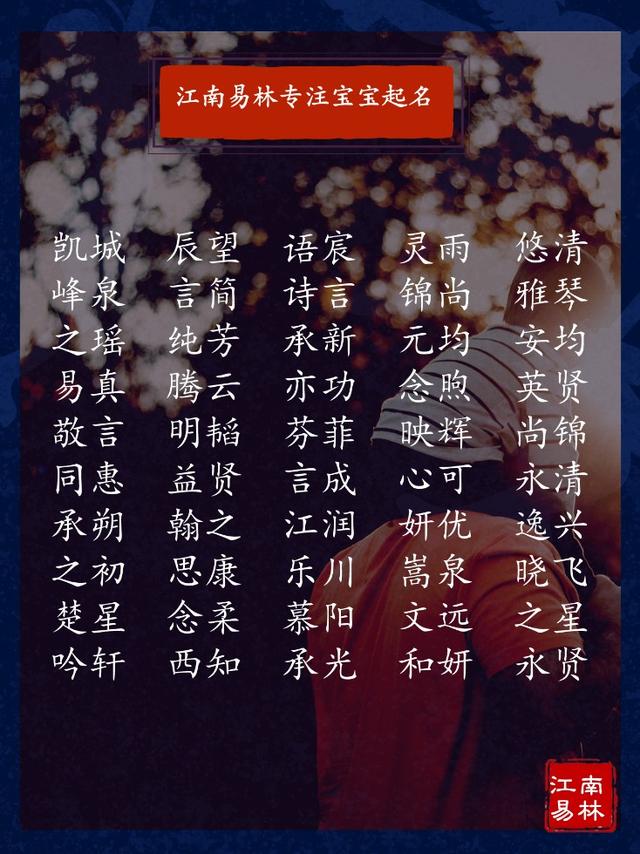 江南易林专注宝宝起名
凯城 辰望 语宸 灵雨 悠清
峰泉 言简 诗言 锦尚 雅琴
之瑶 纯芳 承新 元均 安均
易真 腾云 亦功 念煦 英贤
敬言 明韬 芬菲 映辉 尚锦
同惠 益贤 言成 心可 永清
承朔 翰之 江润 妍优 逸兴
之初 思康 乐川 嵩泉 晓飞
楚星 念柔 慕阳 文远 之星
吟轩 西知 承光 和妍 永贤
江南
易林